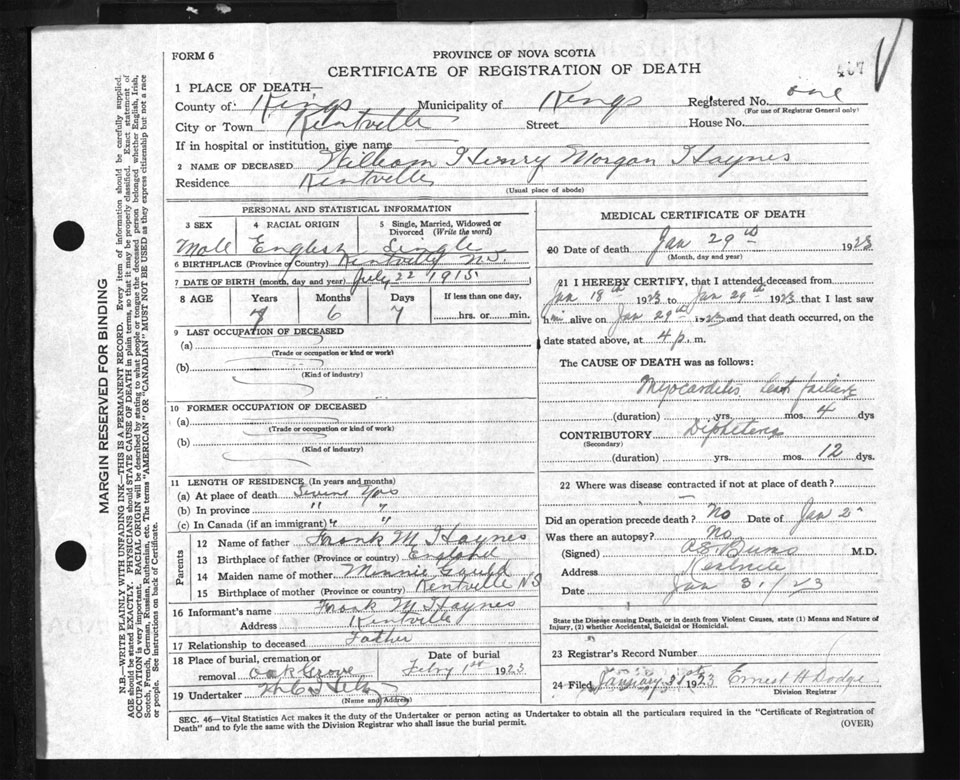 FORM 6
PROVINCE OF NOVA SCOTIA
CERTIFICATE OF REGISTRATION OF DEATH
467
1 PLACE OF DEATH—
County of: Kings Municipality of Kings Registered No. one
(For use of Registrar General only)
City or Town Kentville Street House No.
If in hospital or institution, give name
2 NAME OF DECEASED William Henry Morgan Haynes
Residence Kentville
(Usual place of abode)
PERSONAL AND STATISTICAL INFORMATION
3 SEX 4 RACIAL ORIGIN 5 Single, Married, Widowed or Divorced (Write the word)
Male English Single
6 BIRTHPLACE (Province or Country) Kentville N.S.
7 DATE OF BIRTH (month, day and year) July 22 1915
8 AGE Years Months Days If less than one day,
7 6 7 hrs. or min.
9 LAST OCCUPATION OF DECEASED
(a)
(Trade or occupation or kind or work)
(b)
(Kind of industry)
10 FORMER OCCUPATION OF DECEASED
(a)
(Trade or occupation or kind of work)
(b)
(Kind of industry)
11 LENGTH OF RESIDENCE (In years and months)
(a) At place of death Sevens Yrs
(b) In province " "
(c) In Canada (if an immigrant) " "
Parents
12 Name of father Frank M Haynes
13 Birthplace of father (Province or country) England
14 Maiden name of mother Minnie Gould
15 Birthplace of mother (Province or country) Kentville N S
16 Informant's name Frank M Haynes
Address Kentville
17 Relationship to deceased Father
18 Place of burial, cremation or removal Oak Grove Date of burial Febry 1st 1923
19 Undertaker
(Name and Address)
MEDICAL CERTIFICATE OF DEATH
20 Date of death Jan 29th 1923
(Month, day and year)
21 I HEREBY CERTIFY, that I attended deceased from
Jan 18th 1923 to Jan 29th 1923 that I last saw
him alive on Jan 29th 1923 and that death occurred, on
the date stated above, at 4 p. m.
The CAUSE OF DEATH was as follows:
Myocarditis heart failure
(duration) yrs. mos. 4 dys
CONTRIBUTORY Diphtheria
(Secondary)
(duration) yrs. mos. 12 dys.
22 Where was disease contracted if not at place of death?
Did an operation precede death? No Date of Jan 2
Was there an autopsy? No
(Signed) M.D.
Address Kentville
Date Jan 31/23
State the Disease causing Death, or in death from Violent Causes, state (1) Means and Nature of
Injury, (2) whether Accidental, Suicidal or Homicidal.
23 Registrar's Record Number
24 Filed January 31st 1923 Ernest H Dodge
Division Registrar
SEC. 46—Vital Statistics Act makes it the duty of the Undertaker or person acting as Undertaker to obtain all the particulars required in the "Certificate of Registration of
Death" and to fyle the same with the Division Registrar who shall issue the burial permit. (OVER)
MARGIN RESERVED FOR BINDING
N.B.—WRITE PLAINLY WITH UNFADING INK—THIS IS A PERMANENT RECORD. Every item of information should be carefully supplied.
AGE should be stated EXACTLY. PHYSICIANS should STATE CAUSE OF DEATH in plain terms, so that it may be properly classified. Exact statement of
OCCUPATION is very important. RACIAL ORIGIN will be described by stating to what people or tongue the deceased person belonged whether English, Irish,
Scotch, French, German, Russian, Ruthenian, etc. The terms "AMERICAN" or "CANADIAN" MUST NOT BE USED as they express citizenship but not a race
or people. See instructions on back of Certificate.